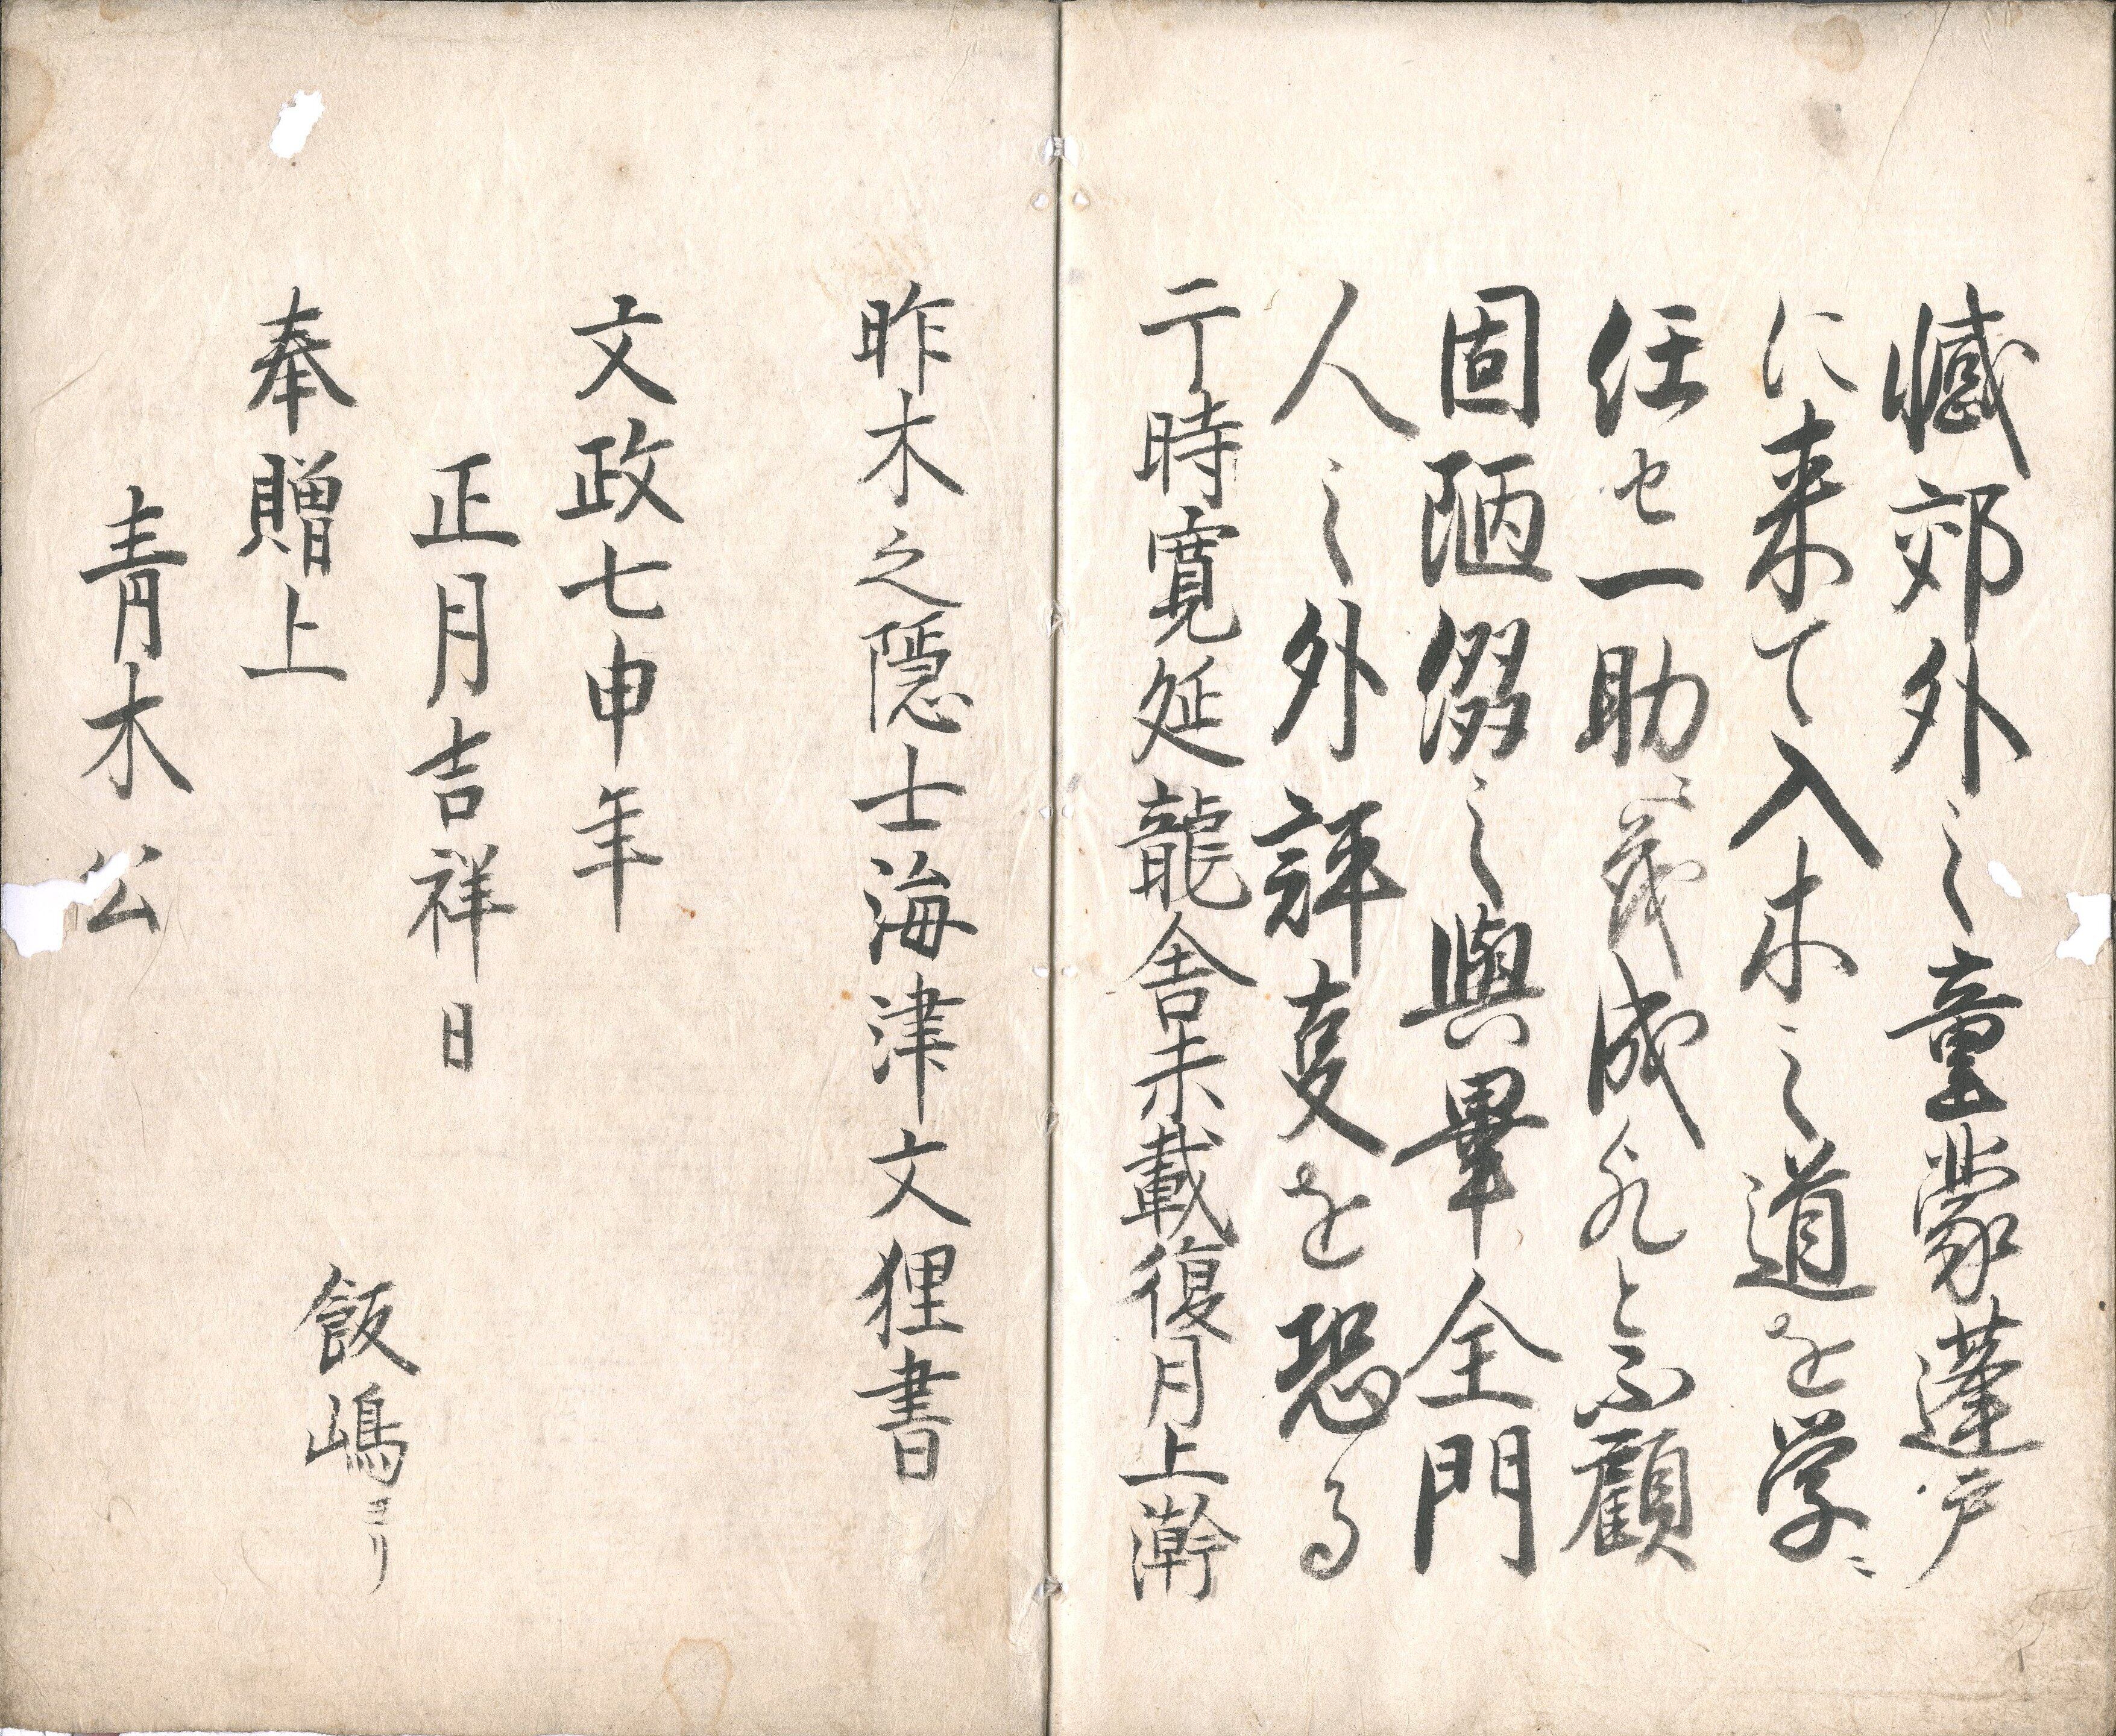 憾郊外之童蒙蓬戸
に来て入木之道を学ニ
任セ一助ニ茂成れと不顧
固陋綴之與畢全門
人之外評定を恐る
于時寛延龍舎未載復月上澣
昨木之隠士海津文狸書
文政七申年
正月吉祥日
飯嶋より
奉贈上
青木公